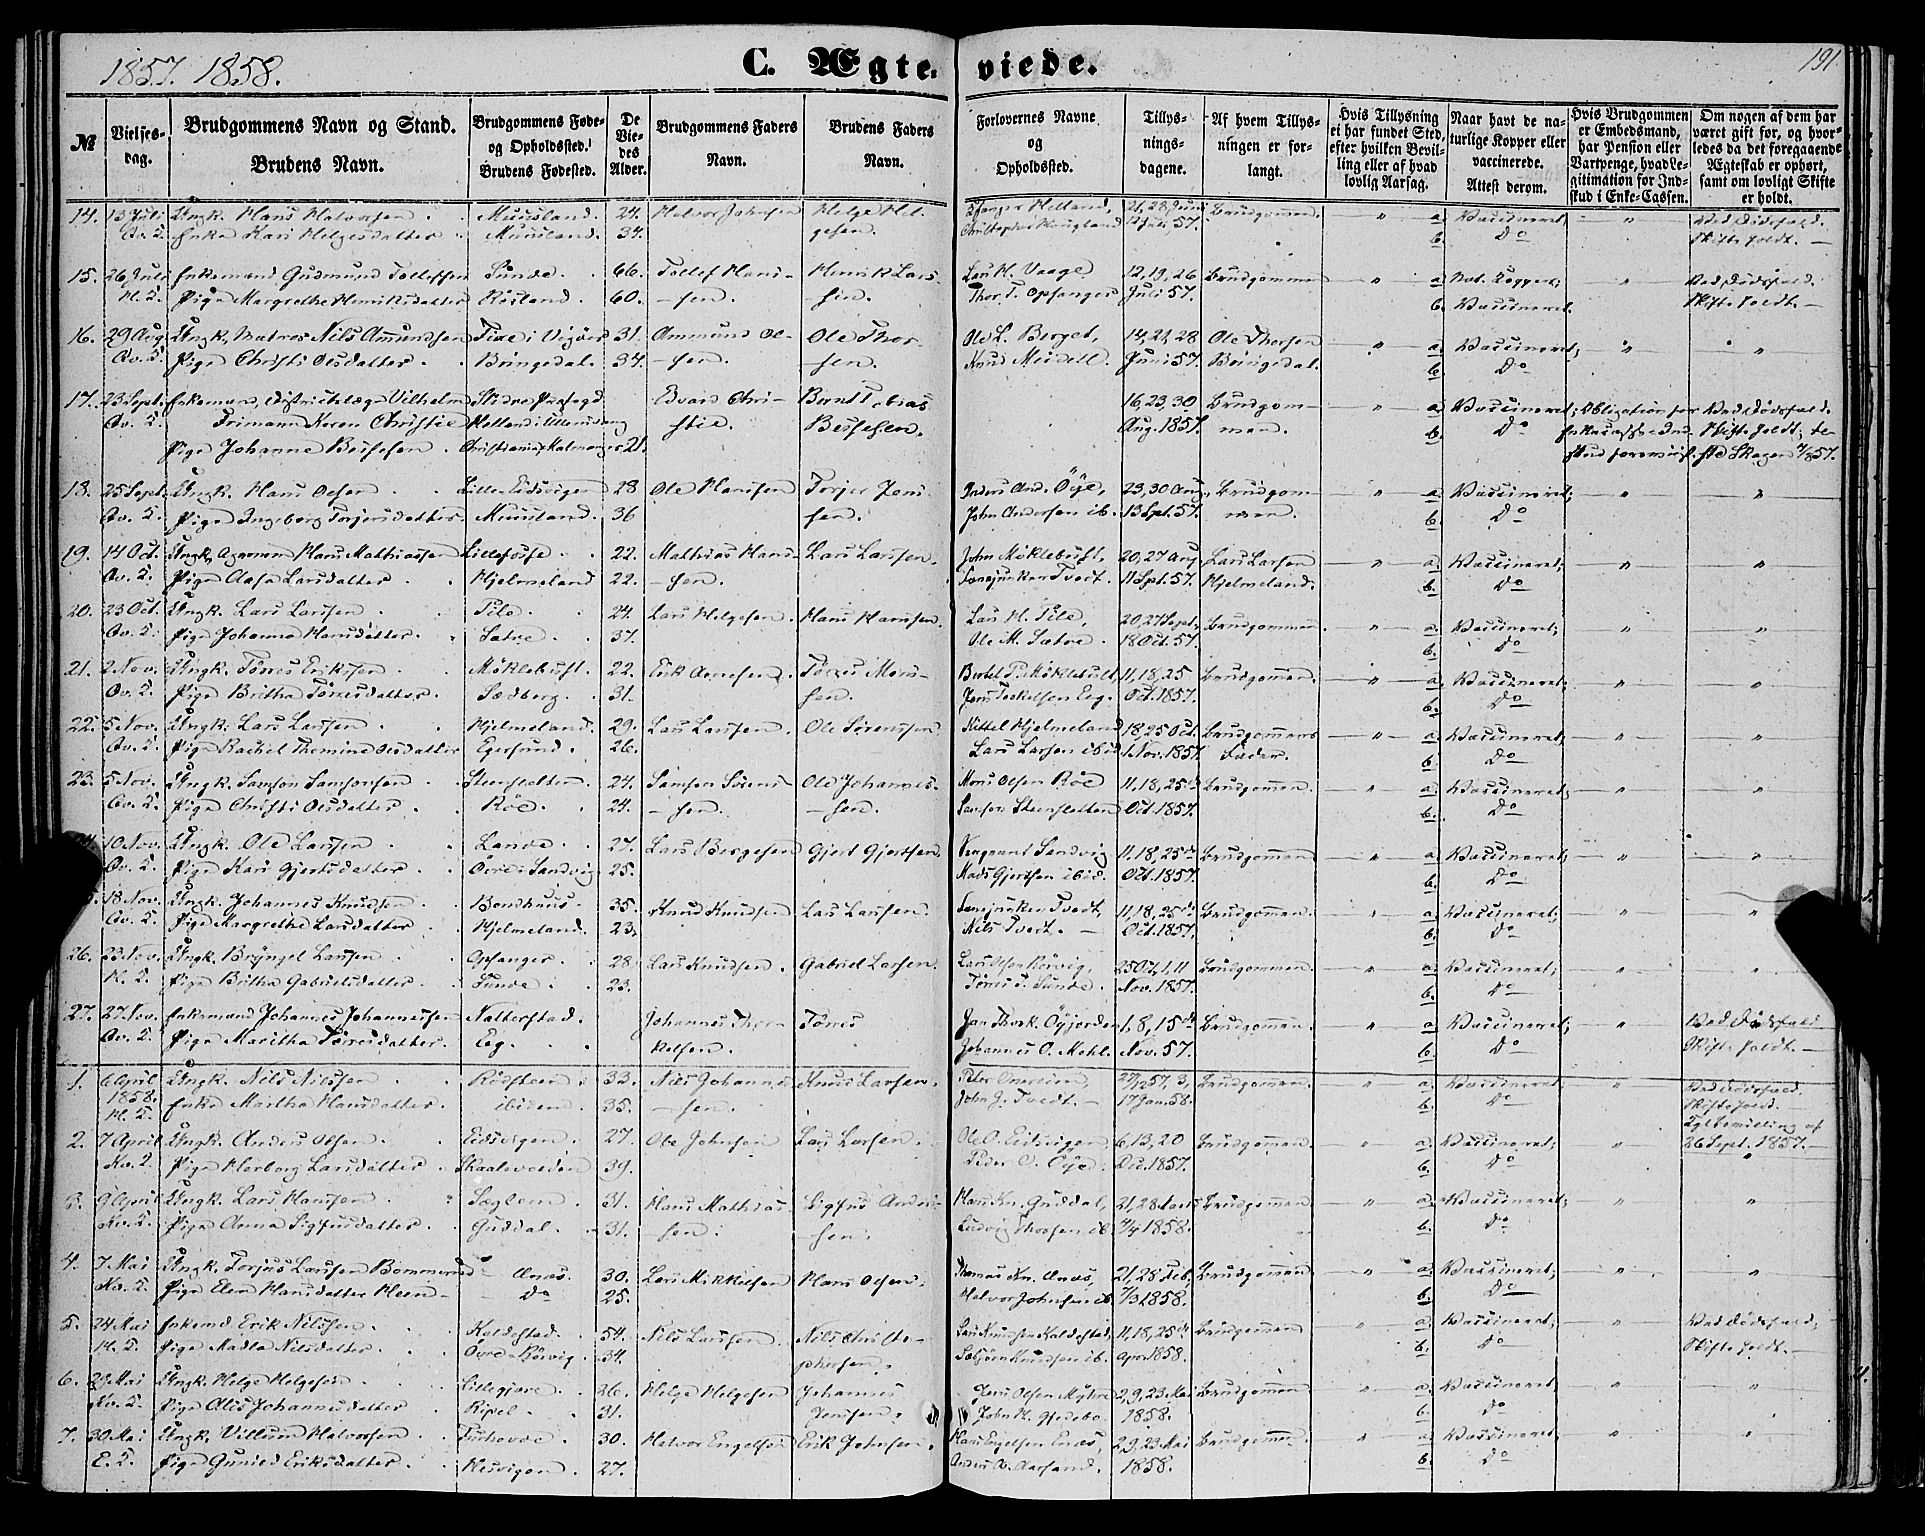 1857. 1858.
C. Ægteviede.
191
№
Vielsesdag.
Brudgommens Navn og Stand.
Brudens Navn.
Brudgommens Føde- og Opholdssted.
Brudens Fødested.
De Viedes Alder.
Brudgommens Faders Navn.
Brudens Faders Navn.
Forlovernes Navne og Opholdssted.
Tillysningsdagene.
Af hvem Tillysningen er forlangt.
Hvis Tillysning ei har fundet Sted, efter hvilken Bevilling eller af hvad lovlig Aarsag.
Naar havt de naturlige Kopper eller vaccinerede.
Attest derom.
Hvis Brudgommen er Embedsmand, har Pension eller Vartpenge, hvad Legitimation for Indskud i Enke-Cassen.
Om nogen af dem har været gift før, og hvorledes da det foregaaende Ægteskab er ophørt, samt om lovligt Skifte er holdt.
14. 13 Juli Ungk. Hans Halvorsen Muusland. 24. Halvor Johnsen Helge Hel- 21, 28 Juni Brudgommen. a. Vaccineret; Ved Dødsfald.
Qv. S. Enke Kari Helgesdatter Muusland. 34. gesen. 12 Juli, 57. b. Do Skifte holdt.
15. 26 Juli Enkemand Gudmund Tollefsen Sunde. 66. Tollef Han- Henrik Lars- Lars H. Vaage 12, 19, 26 Brudgommen a. Nat. Kopper; Ved Dødsfald.
H. S. Pige Margrethe Henriksdatter Røsland. 60. sen. sen. Thor T. Opsanger Juli 57. b. Vaccineret. Skifte holdt.
16. 29 Aug Ungk. Matros Nils Amundsen 31. Ammund Ol- Ole Thor- Ole L. Berget, 14, 21, 28 Ole Thorsen a. Vaccineret;
Qv. S. Pige Christi Olsdatter Bringedal. 34. sen. sen. Knud Meidell Juni 57. Bringedal. b. Do
17. 23 Sept. Enkemand, Districtslæge Vilhelm Edvard Chri- Bernt Tobias 16, 23, 30 Brudgom- a. Vaccineret; Obligation for Ved Dødsfald.
Qv. S. Frimann Koren Christie stie. Bessesen. Aug. 1857. men. b. Do Enkecasse-Ind- Skifte holdt;
Pige Johanne Bessesen 21. skud forevist.
18. 25 Sept. Ungk. Hans Olsen Lille Eidsvigen 28 Ole Hansen Torjer Jon- Anders And. Øye, 23, 30 Aug. Brudgom- a. Vaccineret;
Qv. S. Pige Ingeborg Torjersdatter Muusland. 36 sen. John Andersen ib. 13 Spt. 57. men. b. Do
19. 14 Oct. Ungk. Agronom Hans Mathiassen Lillefosse 22. Mathias Han- Lars Larsen. John Møklebust, 20, 27 Aug Lars Larsen a. Vaccineret;
Qv. S. Pige Aasa Larsdatter Hjelmeland 22. sen. Tvedt. 11 Spt. 57. Hjelmeland. b. Do
20. 23 Oct. Ungk. Lars Larsen Pile. 24. Lars Helgesen. Hans Hansen. Lars H. Pile, 20, 27 Sept. Brudgommen. a. Vaccineret;
Qv. S. Pige Johanna Hansdatter Sætre. 37. Ole M. Sætre. 18 Oct. 57. b. Do
21. 2 Nov. Ungk. Tørres Eriksen Møklebust. 22. Erik Arnesen. Tørres Mons- Møklebust 11, 18, 25 Brudgommen. a. Vaccineret;
Qv. S. Pige Britha Tørresdatter. Sædberg. 31. sen. Jens Torkelsen Eeg. Oct. 1857. b. Do
22. 5 Nov. Ungk. Lars Larsen Hjelmeland. 29. Lars Larsen. Ole Sørensen Kittel Hjelmeland 18, 25 Oct. Brudgommens a. Vaccineret;
Qv. S. Pige Rachel Thomine Olsdatter Egersund. 26. Lars Larsen ibid. 1 Nov. 1857. Fader. b. Do
23. 5 Nov. Ungk. Samson Samsonsen Steensletten 24. Samson Sørens- Ole Johannes- Mons Olsen Røe 11, 18, 25de Brudgommen. a. Vaccineret;
Qv. S. Pige Christi Olsdatter Røe. 24. sen. sen. Samson Steensletten Oct. 1857. b. Do
10 Nov. Ungk. Ole Larsen Lande. 27. Lars Børgesen Gjert Gjertsen. Sergeant Sandvig 11, 18, 25de Brudgommen. a. Vaccineret;
Qv. S. Pige Kari Gjertsdatter Øvre Sandvig 25. Mads Gjertsen ibid. Oct. 1857. b. Do
18 Nov. Ungk. Johannes Knudsen Bondhuus. 35. Knud Knudsen Lars Larsen Tvedt, 11, 18, 25de Brudgommen. a. Vaccineret;
Qv. S. Pige Margrethe Larsdatter Hjelmeland. 23. Nils Tvedt. Oct. 1857. b. Do
26. 23 Nov. Ungk. Bryngel Larsen Opsanger. 28. Lars Knudsen. Gabriel Larsen. Lars Olsen Rørvig, 25 Oct, 1, 11 Brudgommen. a. Vaccineret;
H. S. Pige Britha Gabrielsdatter Sunde. 23. Tørres T. Sunde. Nov. 1857. b. Do
27. 27 Nov. Enkemand Johannes Johannessen Natterstad. Johannes Thor- Tørres Øyjorden 1, 8, 15de Brudgommen. a. Vaccineret; Ved Dødsfald
Qv. S. Pige Maritha Tørresdatter. Eeg. kelsen. Johannes O. Mehl. Nov. 57. b. Do Skifte holdt.
1. 6 April Ungk. Nils Nilssen Rødsteen. 33. Nils Johannes- Knud Larsen. 27/12 57, 3, Brudgommen. a. Vaccineret; Ved Dødsfald.
1858. H. S. Enke Martha Hansdatter ibidem. 35. sen. John J. Tvedt. 17 Jan. 58. b. Do Skifte holdt.
2. 7 April Ungk. Anders Olsen Eidsvigen. 27. Ole Johnsen Lars Larsen. Ole O. Eidsvigen, 6, 13, 20 Brudgommen. a. Vaccineret; 26 Sept. 1857.
Kv. S. Pige Herborg Larsdatter Skaalevolden 39. Peder O. Øye. Dec. 1857. b. Do
3. 9 April Ungk. Lars Hansen Sæglem 31. Hans Mathias- Sigfus Andr- Hans Kn. Guddal, 21, 28 Brudgommen a. Vaccineret;
Kv. S. Pige Anna Sigfusdatter Guddal. 31. sen. sen. Ludvig Thorsen ib. 1858. b. Do
4. 7 Mai Ungk. Torjus Larsen Ænæs. 30. Lars Mikkelsen Hans Olsen. Thomas Kn. Ænæs, 21, 28 Feb. Brudgommen a. Vaccineret;
Kv. S. Pige Elen Hansdatter Do 25. Halvor Johnsen ib. 7/3 1858. b. Do
5. 24 Mai Enkemd. Erik Nilssen. Kaldestad. 54. Nils Larsen. Nils Christo- Lars Knudsen Kaldestad, 11, 18, 25de Brudgommen a. Vaccineret; Ved Dødsfald;
H. S. Pige Madla Nilsdatter Øvre Rørvig. 34. phersen. Knudsen ib. Apr. 1858. b. Do Skifte holdt.
6. Mai Ungk. Helge Helgesen Lillegjære. 26. Helge Helgesen Johannes Jens Olsen Myhre 2, 9, 23 Mai Brudgommen a. Vaccineret;
Kv. S. Pige Johannesdatter Ripel. 31. Jensen. John H. Gjedebo. 1858. b. Do
7. 30 Mai Ungk. Villum Halvorsen 30. Halvor Engelsen Erik Johnsen. Hans Engelsen Ænæs, 2, 9, 23 Mai Brudgommen. a. Vaccineret;
Pige Gunild Eriksdatter Hesvigen. 27. Anders A. Aarsand. 1858. b. Do